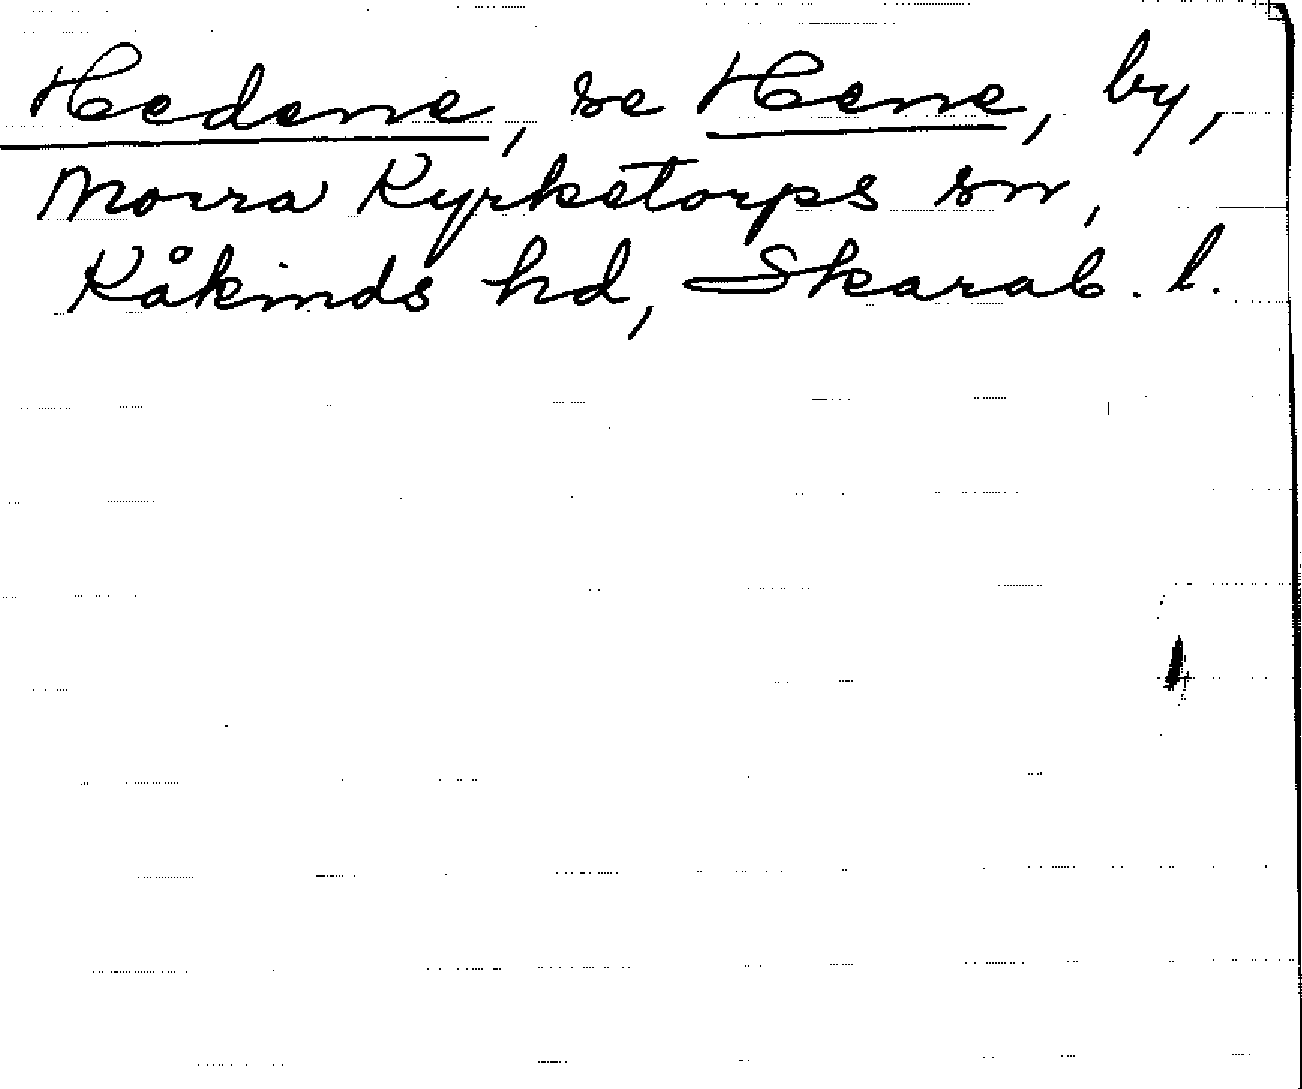 Hedene, se Hene, by,
Norra Kyrketorps sn,
Kåkinds hd, Skarab. l.